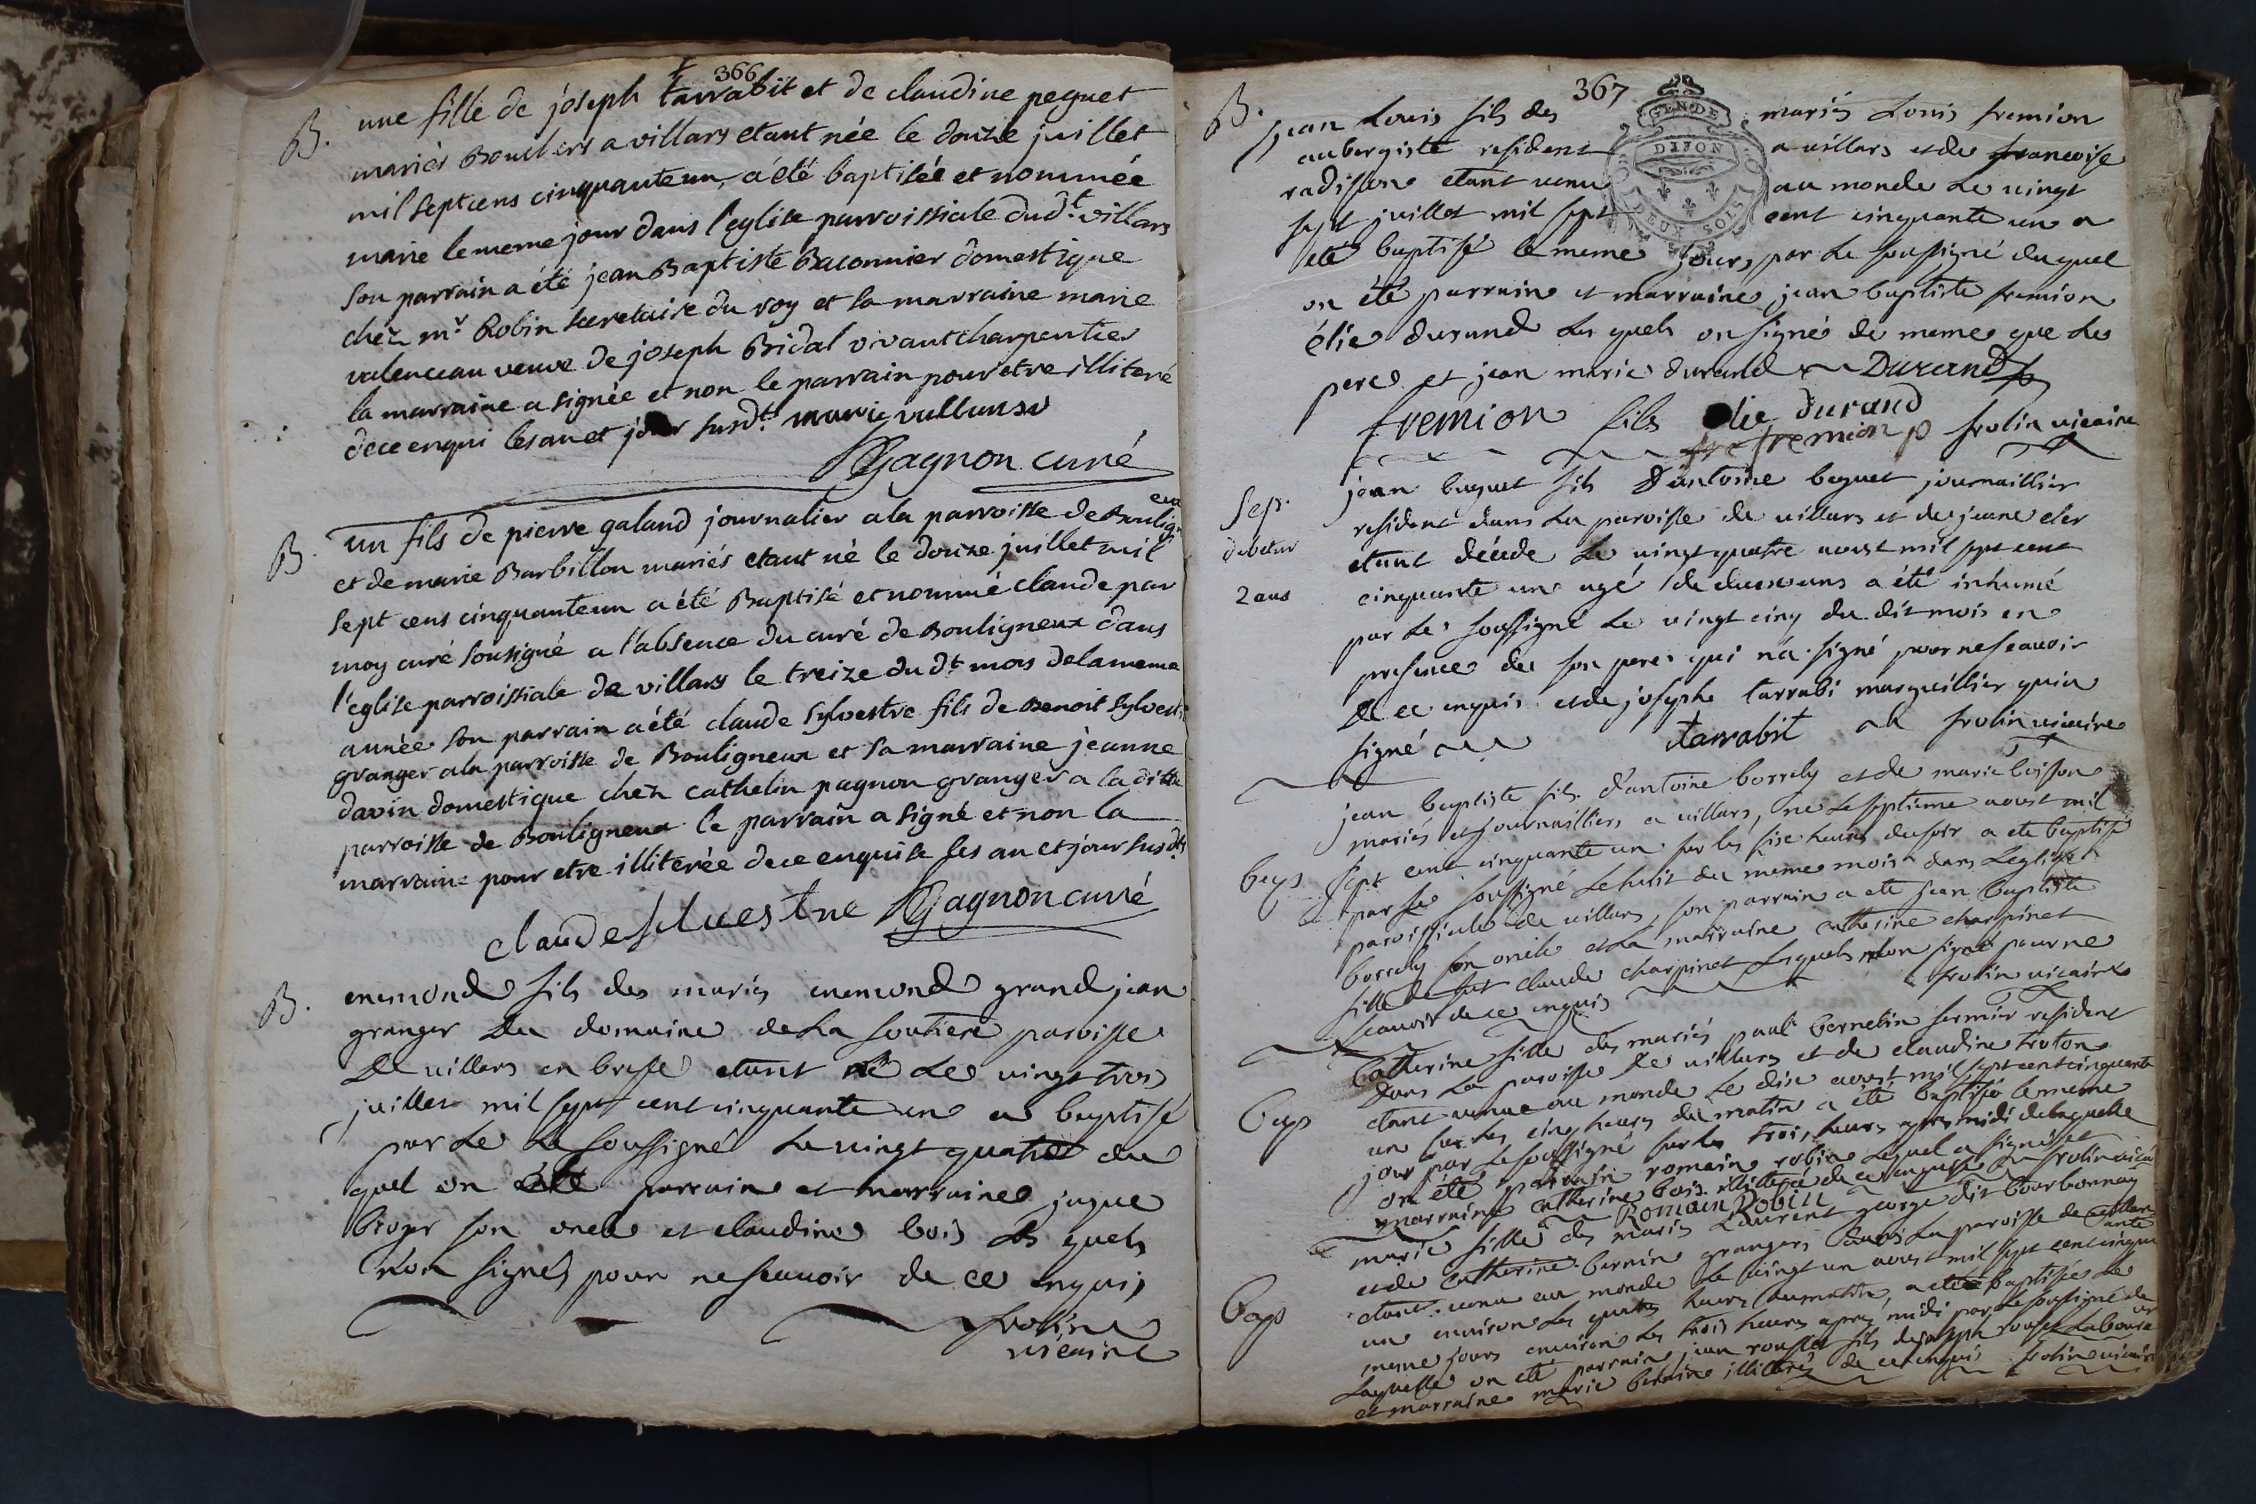 366
B. une fille de joseph tarrabit et de claudine peguet
mariés Bouchers a villars etant née le douze juillet
mil sept cens cinquante un, a été baptisée et nommée
marie le meme jour dans l'eglise parroissiale dud.t villars
son parrain a été jean Baptiste Baconnier domestique
chez mr. Robin secretaire du roy et la marraine marie
valenceau veuve de joseph Bridal vivant charpentier
la marraine a signée et non le parrain pour etre illiteré
de ce enqui les an et jour susdt. marie
Gagnon curé
B. un fils de pierre galand journalier a la parroisse de Bouligneux
et de marie Barbillon mariés etant né le douze juillet mil
sept cens cinquante un a été Baptisé et nommé claude par
moy curé sousigné a l'absence du curé de Bouligneux dans
l'eglise parroissiale de villars le treize du dt. mois de la meme
année son parrain a été claude sylvestre fils de Benoit Sylvest
granger a la parroisse de Bouligneux et sa marraine jeanne
davin domestique chez cathelin pagnon granger a la ditte
parroisse de Bouligneux le parrain a signé et non la
marraine pour etre illiterée de ce enquise les an et jour susdts
claude silvestre Gagnon curé
B. enemond fils des mariés enemond grand jean
granger du domaine de la soutiere paroisse
de villars en bresse etant né le vingt trois
juillet mil sept cent cinquante un a baptisé
par le le soussigné le vingt quatre du
quel on été parrain et marraine jaque
son oncle et claudine bois les quels
n'on signés pour ne scauoir de ce enquis
frolin
vicaire
367
GEN DE
DIJON
DEUX SOLS
B. jean Louis fils des mariés Louis fremion
aubergiste resident a villars et de francoise
radisson etant venu au monde le vingt
sept juillet mil sept cent cinquante un a
été baptisé le meme jours par le soussigné duquel
on été parrain et marraine jean baptiste fremion
élie durand les quels on signé de meme que le
pere et jean marie durand Durand
fremion fils elie durand
fremion p frolin vicaire
Sep. jean buguet fils d'antoine beguet journaillier
resident dans la paroisse de villars et de jeane
etant décede le vingt quatre aoust mil sept cent
2 ans cinquante un agé de deux ans a été inhumé
par le soussigné le vingt cinq du dit mois en
presence de son pere qui n'a signé pour ne scauoir
de ce enquis et de joseph tarrabi marguillier qui a
signé tarrabit frolin vicaire
jean baptiste fils d'antoine borrely et de marie boisson
mariés et journailliers a villars, ne le septieme aoust mil
bap sept cent cinquante un sur les six heures du soir a ete baptisé
par le soussigné le huit du meme mois dans l'eglise
paroissiale de villars, son parrain a ete jean baptiste
borrely son oncle et la marraine catherine charpinet
fille de claude charpinet lesquels n'on signé pour ne
scauoir de ce enquis frolin vicaire
Catherine fille des mariés paul bernetin fermier resident
dans la paroisse de villars et de claudine froton
bap etant venue au monde le dix aoust mil sept cent cinquante
un sur les cinq heures du matin a été baptisée le meme
jour par le soussigné sur les trois heures apres midi de laquelle
on été parrain romain robin lequel a signé et
marraine catherine bois illiterée de ce enquise frolin
Romain Robin
marie fille des mariés Laurent george dit bourbonnay
et de catherine bernin grangers dans la paroisse de villars
etant venu au monde le vingt un aoust mil sept cent cinquante
Bap un environ les quatre heures du matin, a été baptisée le
meme jours environ les trois heures apres midi par le soussigné de
laquelle on été parrain jean rousset fils de joseph rousset laboureur
et marraine marie bernin illiterés de ce enquis frolin vicaire